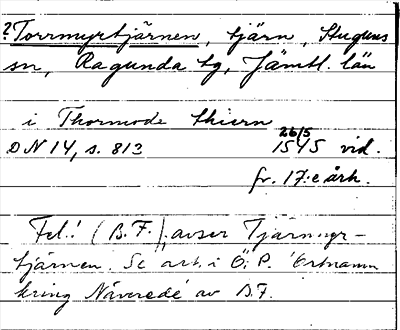 ?Torrmyrtjärnen, tjärn, Stuguns
sn, Ragunda tg, Jämtl. län
i Thormode thiern
26/5
DN 14, s. 813 1545 vid.
fr. 17:e årh.
Fel! (B.F.), avser Tjärnmyr-
tjärnen. Se art. i Ö. P. Ortnamn
kring Näverede av B.F.